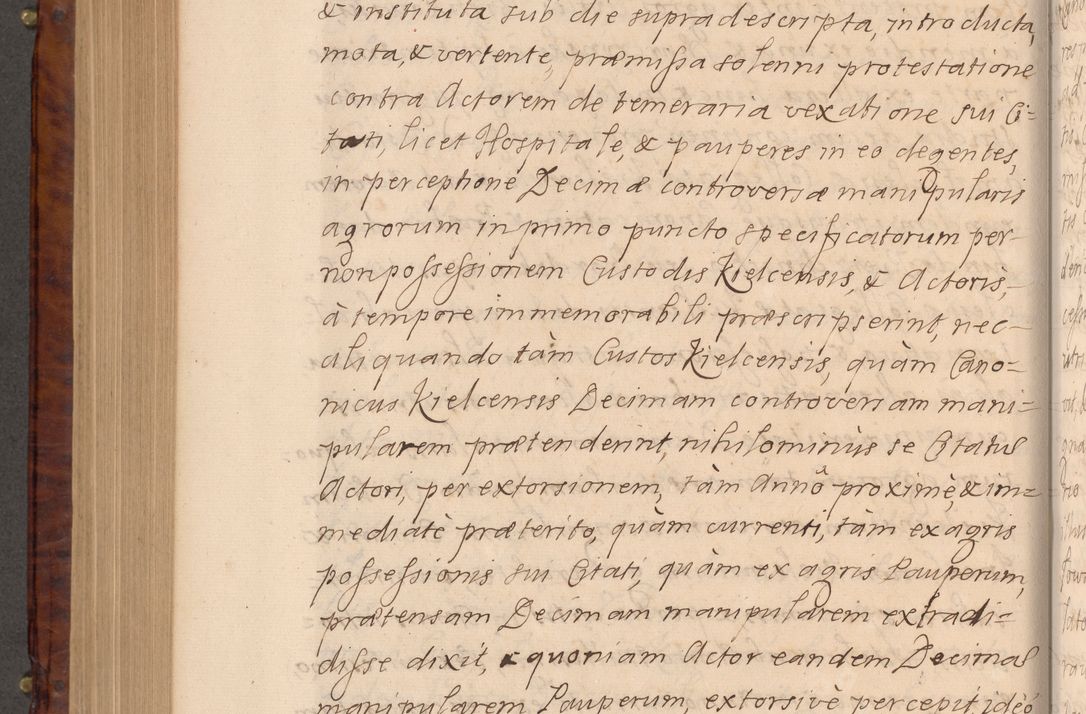 & instituta sub die supradescripta, introducta,
mota, & vertente, præmissa solenni protestatione
contra Actorem de temeraria vexatione sui Ci=
tati, licet Hospitale, & pauperes in eo degentes,
in perceptione Decimæ controversæ manipularis
agrorum in primo puncto specificatorum per
non possessionem Custodis Kielcensis, & Actoris,
à tempore immemorabili præscripserint, nec
aliquando tàm Custos Kielcensis, quàm Cano=
nicus Kielcensis Decimam controversam mani=
pularem prætenderint, nihilominùs se Citatus
Actori, per extorsionem, tàm Annô proximè, & im=
mediatè præterito, quàm currenti, tàm ex agris
possessionis sui Citati, quàm ex agris Pauperum,
prætensam Decimam manipularem extradi=
disse dixit, & quoniam Actor eandem Decimas
manipularem Pauperum, extorsivè percepit, ideò